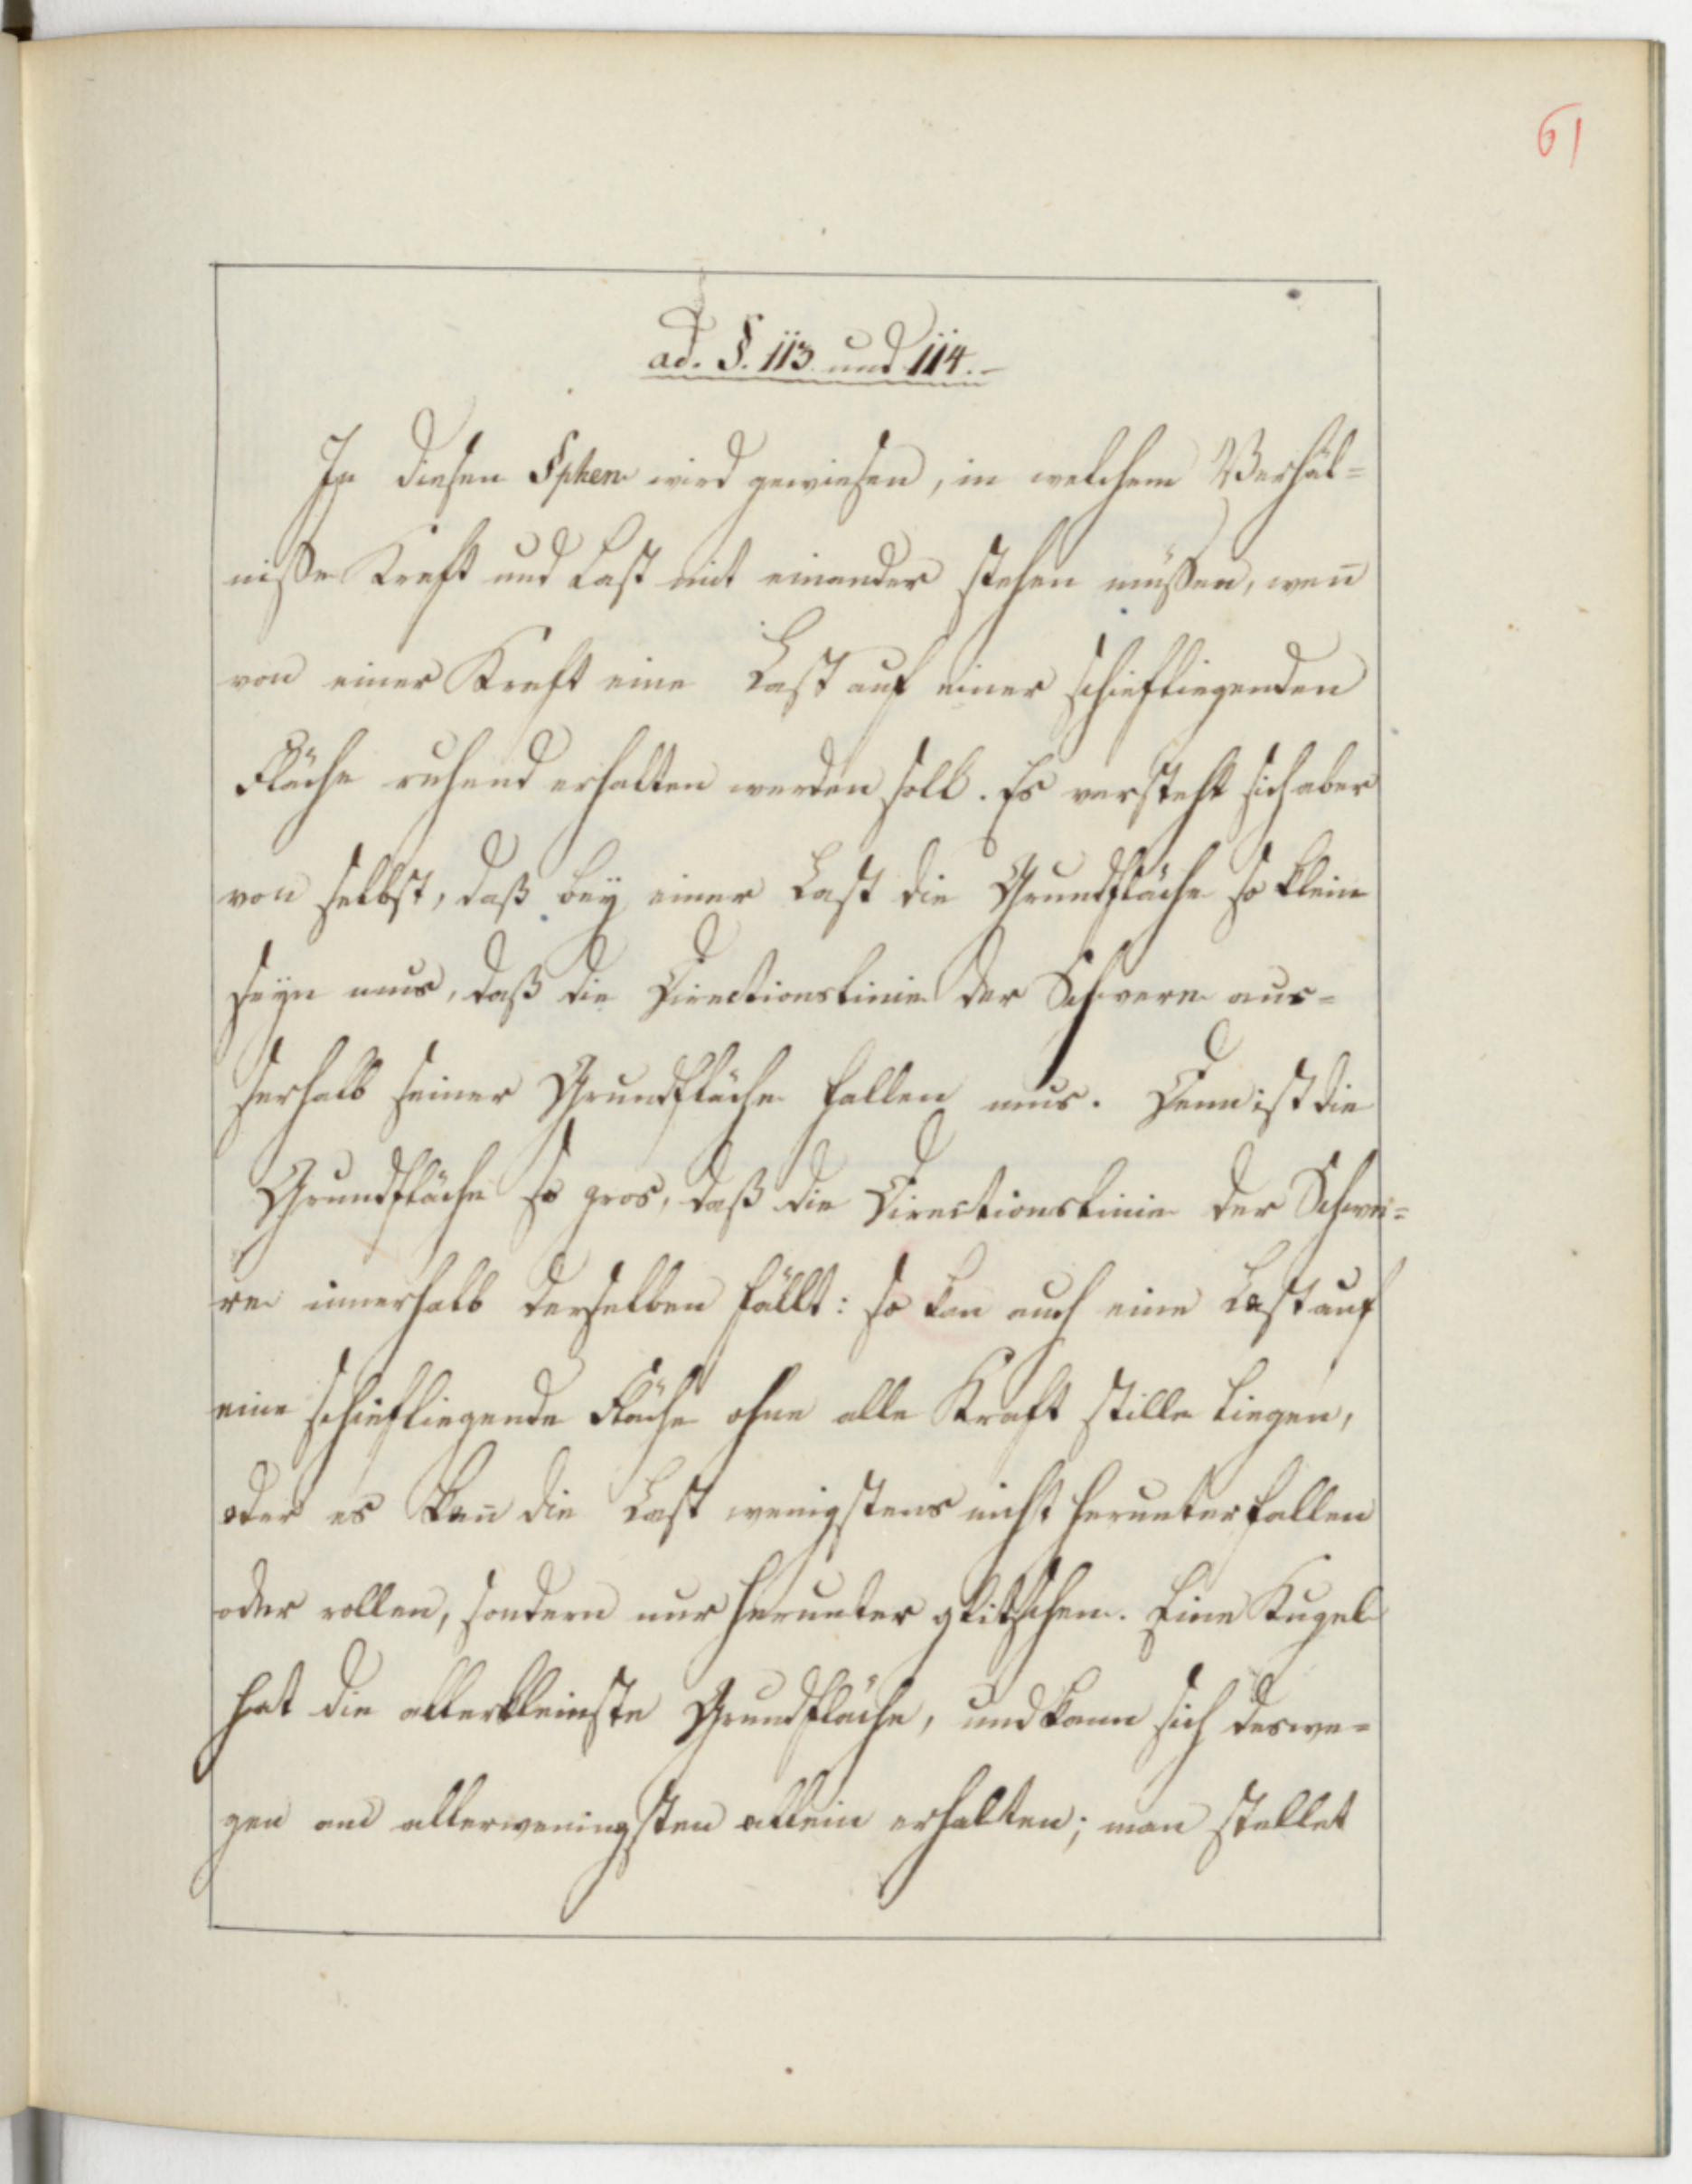 61
ad. §. 113 und 114.-
In diesen §phen wird gewiesen, in welchem Verhäl=
niße Kraft und Last mit einander stehen müßen, wen̄
von einer Kraft eine Last auf einer schiefliegenden
Fläche ruhend erhalten werden soll. Es versteht sich aber
von selbst, daß bey einer Last die Grundfläche so klein
seyn mus, daß die Directionslinie der Schwere aus=
serhalb seiner Grundfläche fallen mus. Denn ist die
Grundfläche so gros, daß die Directionslinie der Schwe=
re innerhalb derselben fällt: so kan auch eine Last auf
eine schiefliegende Fläche ohne alle Kraft stille liegen,
oder es kan̄ die Last wenigstens nicht herunterfallen
oder rollen, sondern nur herunter glitschen. Eine Kugel
hat die allerkleinste Grundfläche, und kann sich deswe=
gen am allerweningsten allein erhalten; man stellet